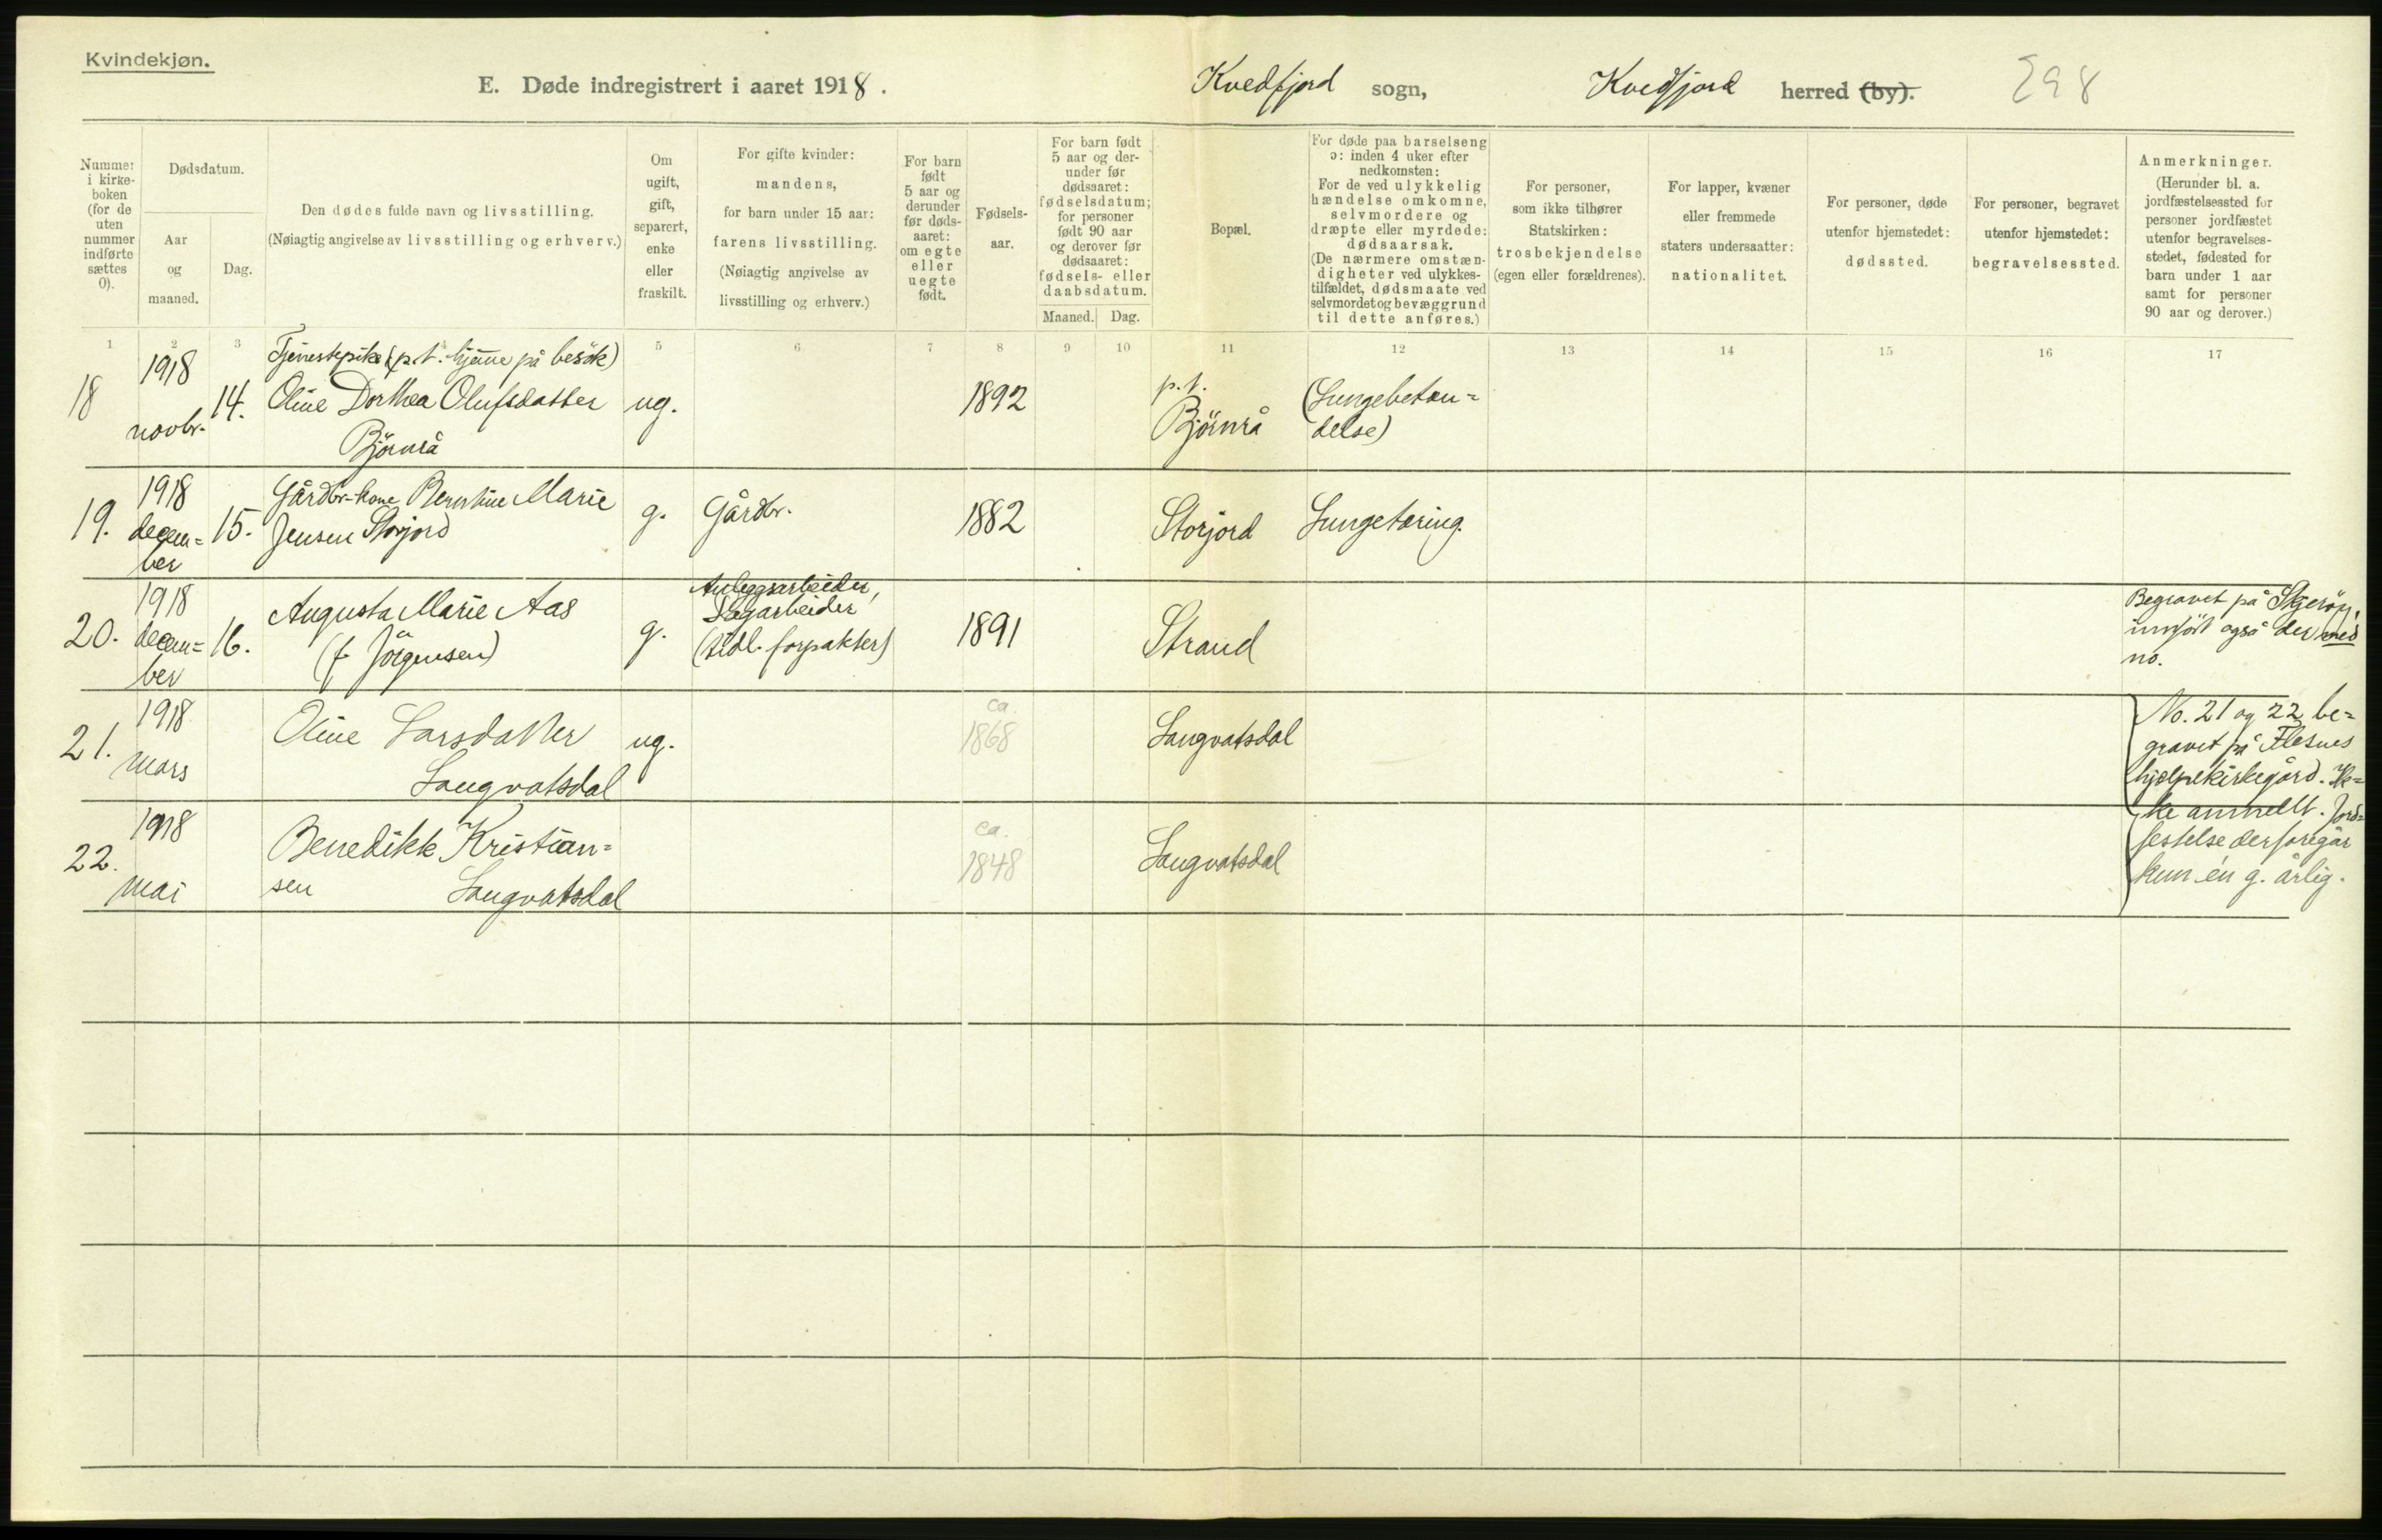 Kvindekjøn.
E. Døde indregistrert i aaret 1918.
Kvedfjord sogn, Kvedfjord herred (by). 298
Nummer
i kirke-
boken
(for de
uten
nummer
indførte
sættes
0).
Dødsdatum.
Aar
og
maaned.
Dag.
Den dødes fulde navn og livsstilling.
(Nøiagtig angivelse av livsstilling og erhverv.)
Om
ugift,
gift,
separert,
enke
eller
fraskilt.
For gifte kvinder:
mandens,
for barn under 15 aar:
farens livsstilling.
(Nøiagtig angivelse av
livsstilling og erhverv.)
For barn
født
5 aar og
derunder
før døds-
aaret:
om egte
eller
uegte
født.
Fødsels-
aar.
For barn født
5 aar og der-
under før
dødsaaret:
fødselsdatum;
for personer
født 90 aar
og derover før
dødsaaret:
fødsels- eller
daabsdatum.
Maaned. Dag.
Bopæl.
For døde paa barselseng
ɔ: inden 4 uker efter
nedkomsten:
For de ved ulykkelig
hændelse omkomne,
selvmordere og
dræpte eller myrdede:
dødsaarsak.
(De nærmere omstæn-
digheter ved ulykkes-
tilfældet, dødsmaate ved
selvmordet og bevæggrund
til dette anføres.)
For personer,
som ikke tilhører
Statskirken:
trosbekjendelse
(egen eller forældrenes).
For lapper, kvæner
eller fremmede
staters undersaatter:
nationalitet.
For personer, døde
utenfor hjemstedet:
dødssted.
For personer, begravet
utenfor hjemstedet:
begravelsessted.
Anmerkninger.
(Herunder bl. a.
jordfæstelsessted for
personer jordfæstet
utenfor begravelses-
stedet, fødested for
barn under 1 aar
samt for personer
90 aar og derover.)
1 2 3 4 5 6 7 8 9 10 11 12 13 14 15 16 17
18
1918
novbr.
14.
Tjenestepike (p.t. hjemme på besök)
Oline Dorthea Olufsdatter
Björnrå
ug.
1892
p.t.
Björnrå
(Lungebetæn=
delse)
19.
1918
decem=
ber
15.
Gårdbr-kone Bernthine Marie
Jensen Storjord
g.
Gårdbr.
1882
Storjord
Lungetæring.
20.
1918
decem=
ber
16.
Augusta Marie Aas
(f. Jörgensen)
g.
Anleggsarbeider,
Slegarbeider
(tidl. forpakter)
1891
Strand
Begravet på Skjeröy,
innfört også der med
no.
21.
1918
mars
Oline Larsdatter
Langvatsdal
ug.
ca.
1868
Langvatsdal
No. 21 og 22 be=
gravet på Flesnes
hjelpekirkegård. Ik=
ke anmeldt. Jord=
festelse der foregår
kun én g. årlig.
22.
1918
mai
Benedikk Kristian=
sen Langvatsdal
ca.
1848
Langvatsdal